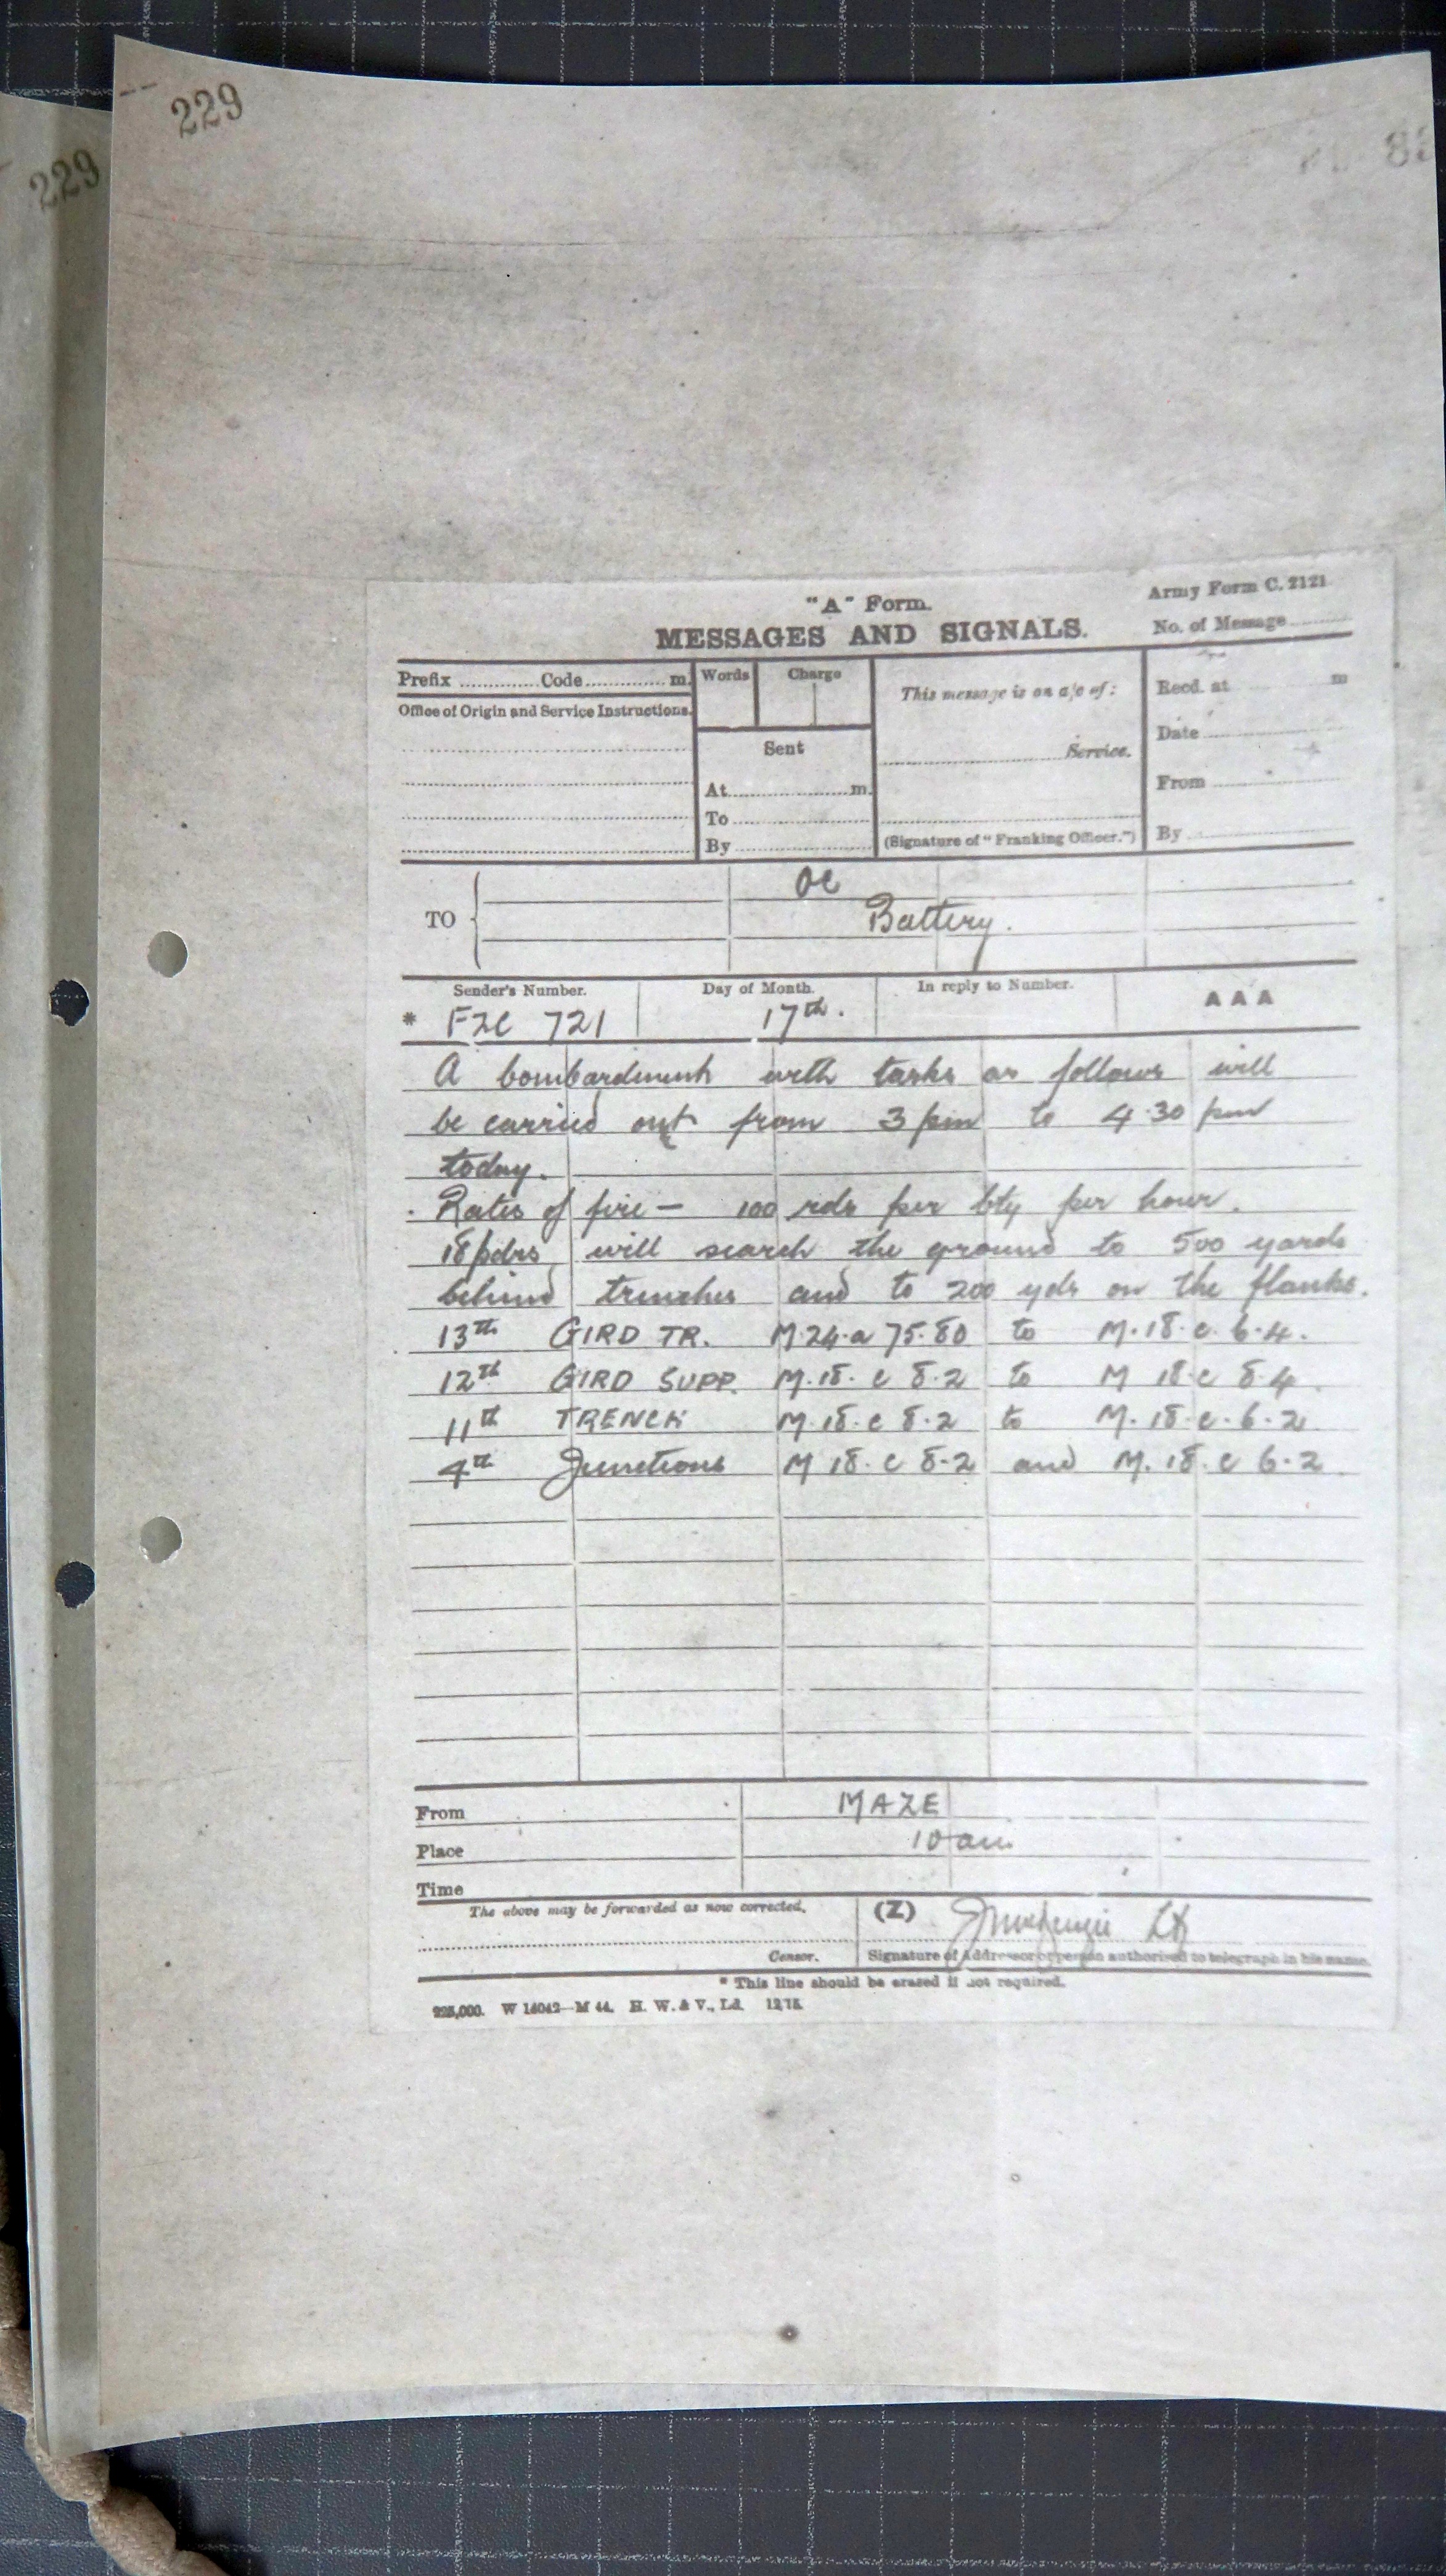 229
229
"A" Form.
Army Form C. 2121
MESSAGES AND SIGNALS.
No. of Message
Prefix Code m.
Words
Charge
This message is on a/c of:
Recd. at m
Office of Origin and Service Instructions.
Sent
Service.
Date
At m.
From
To
By
(Signature of "Franking Officer.")
By
TO
OC
Battery.
Sender's Number.
Day of Month.
In reply to Number.
AAA
* FZC 721
17th.
A bombardment with tasks as follows will
be carried out from 3 pm to 4.30 pm
today.
Rates of fire — 100 rds per bty per hour.
18pdrs will search the ground to 500 yards
behind trenches and to 200 yds on the flanks.
13th GIRD TR. M.24.a 75.80 to M.18.c.6.4.
12th GIRD SUPP. M.18.c 8.2 to M 18.c 8.4.
11th TRENCH M.18.c 8.2 to M.18.c.6.2
4th Junctions M 18.c 8.2 and M.18.c 6.2
From
MAZE
Place
10 am
Time
The above may be forwarded as now corrected.
(Z)
Lt
Censor.
Signature of Addressor or person authorised to telegraph in his name.
* This line should be erased if not required.
225,000. W 14042—M 44. H. W. & V., Ld. 12/15.